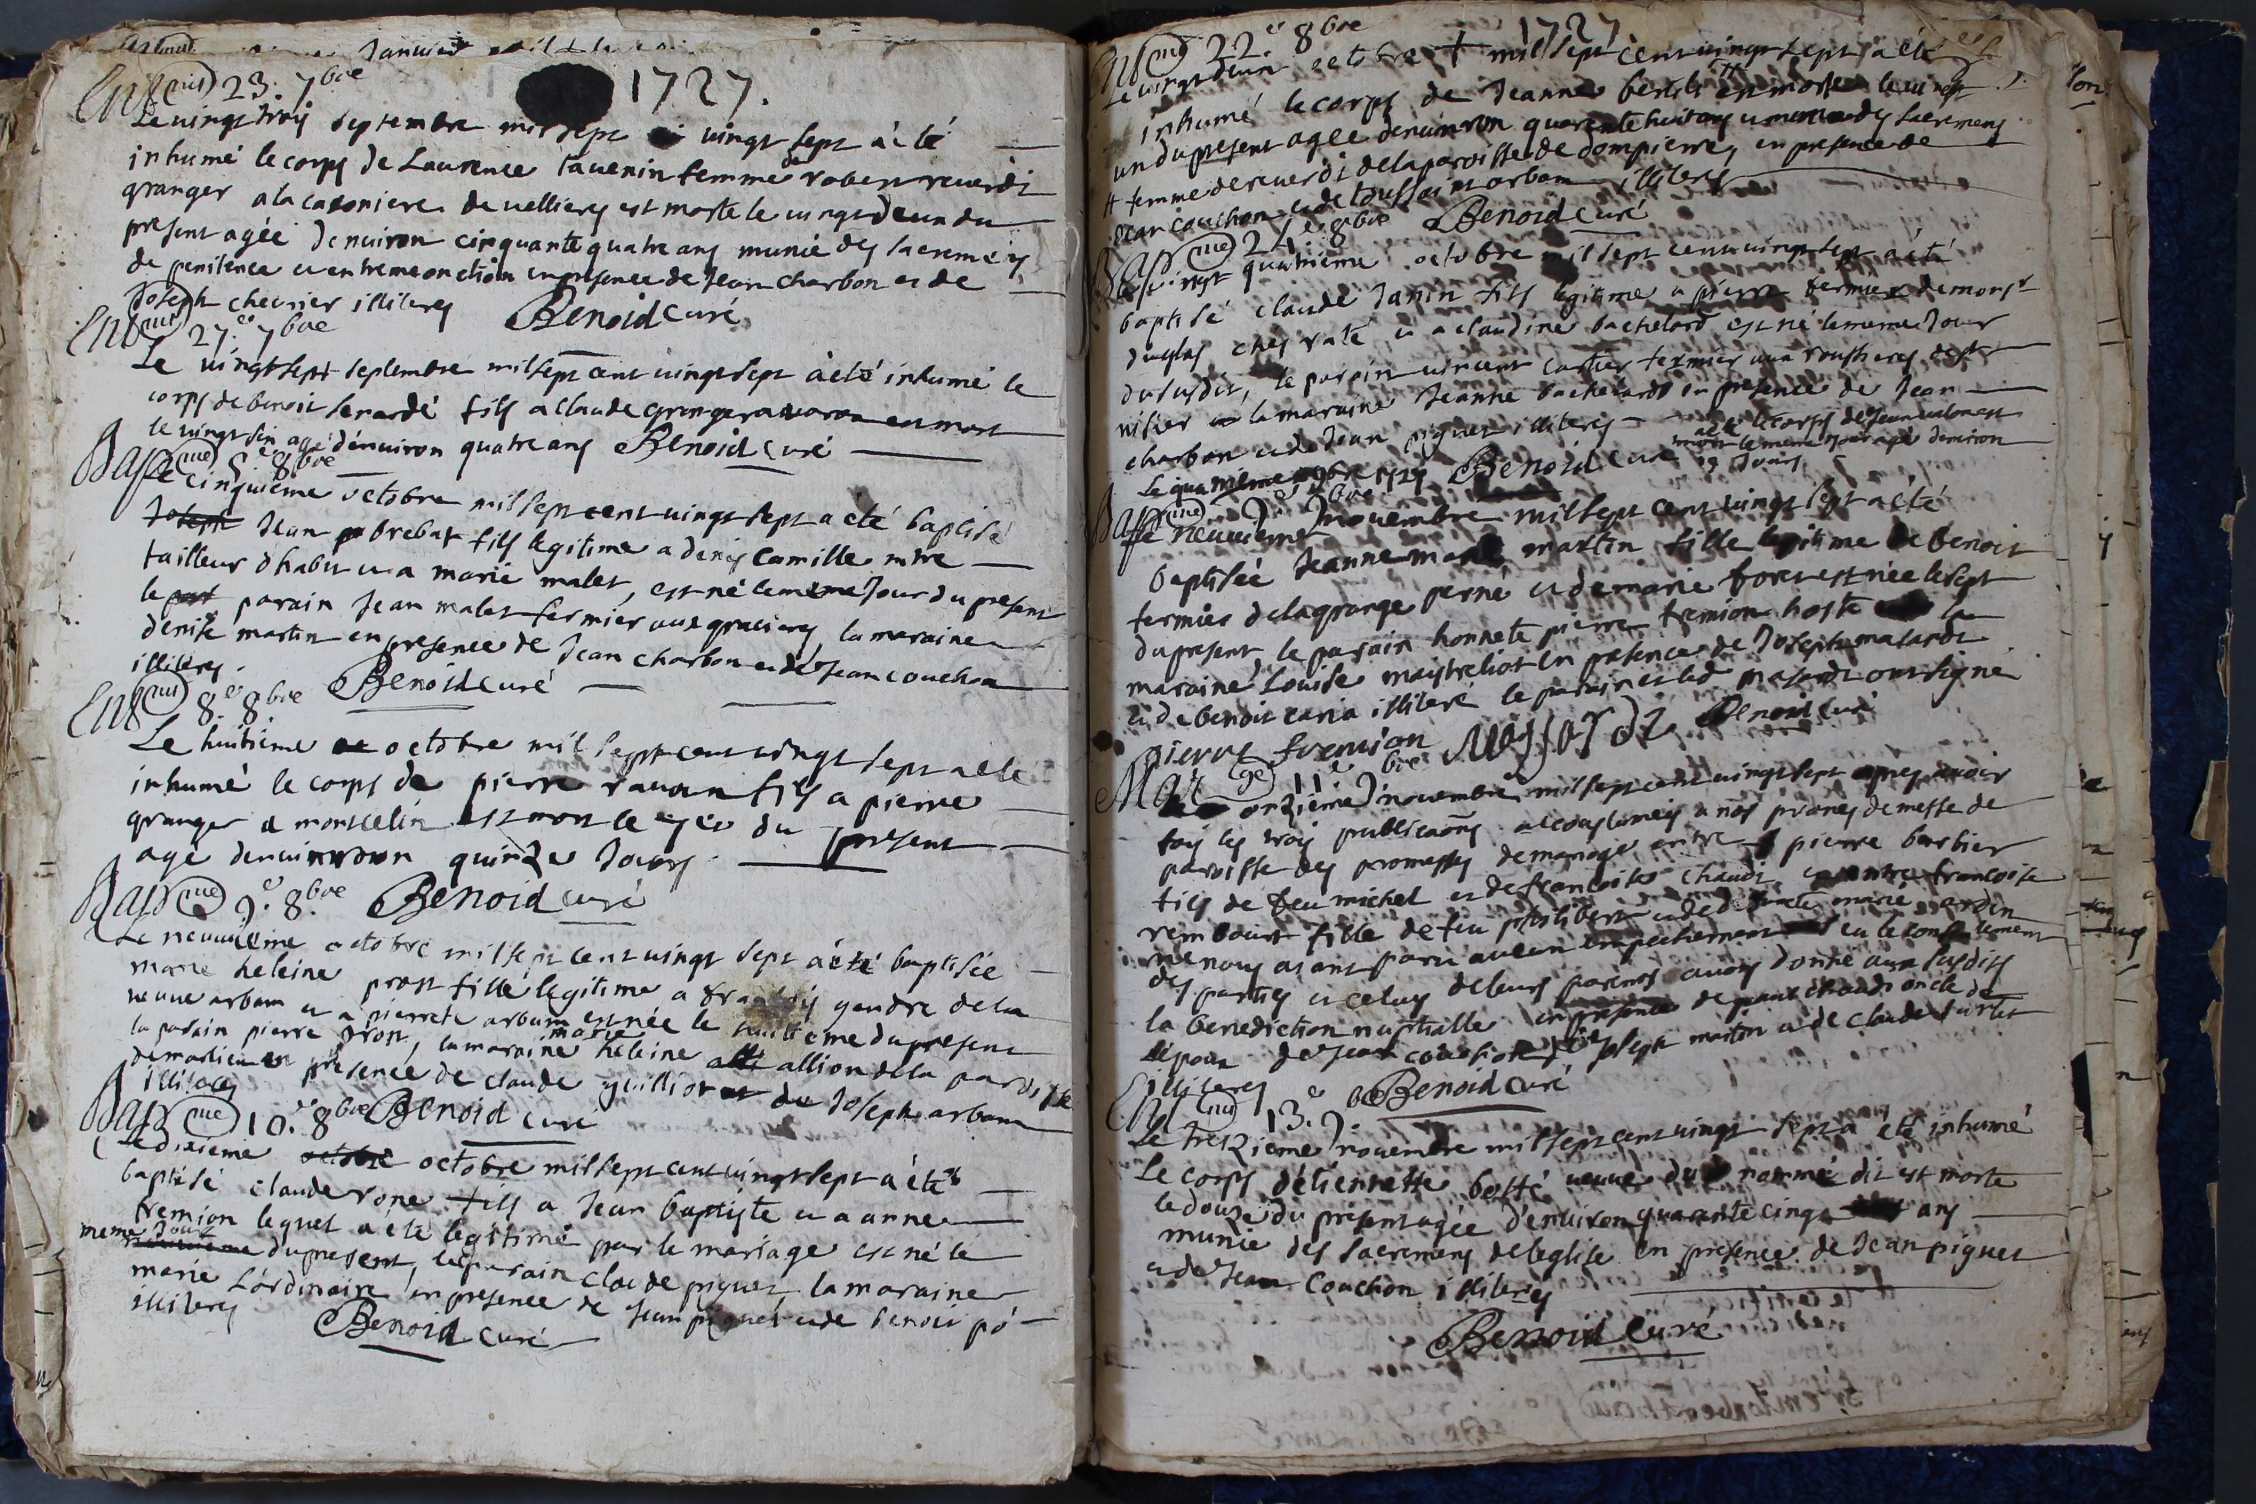 1727.
Ent.mt 23.e 7bre
Le vingt trois septembre mil sept vingt sept a été
inhumé le corps de Laurence tavenin femme de robert reverdi
granger a la caroniere de velliers est morte le vingt deux du
present agée denuiron cinquante quatre ans munie des sacremens
de penitence et extreme onction en presence de Jean charbon et de
Joseph chevrier illiterés Benoid curé
Ent.mt 27.e 7bre
Le vingt sept septembre mil sept cent vingt sept a été inhumé le
corps de benoit fils a claude granger est mort
le vingt six agé d'enuiron quatre ans Benoid curé
Bapt.me 5.e 8bre
Le cinquieme octobre mil sept cent vingt sept a été baptisé
Joseph Jean brebat fils legitime a denis camille mtre
tailleur d habit et a marie malet, est né le meme Jour du present
le parain Jean malet fermier aux graviers la maraine
denise martin en presence de Jean charbon et de Jean couchon
illiterés. Benoid curé
Ent.mt 8.e 8bre
Le huitieme octobre mil sept cent vingt sept a été
inhumé le corps de pierre ravoin fils a pierre
granger a montcelin est mort le du present
agé denuiron quinze Jours
Benoid curé
Bapt.me 9.e 8bre
Le neuuieme octobre mil sept cent vingt sept a été baptisée
marie heleine prost fille legitime a françois gendre de la
veuve arbam et a pierrete arbam est née le huitieme du present
le parain pierre prost, la maraine marie heleine allion de la paroisse
de marlieu en presence de claude guilliot et de Joseph arbam
illiterés Benoid curé
Bapt.me 10.e 8bre
Le dixieme octobre octobre mil sept cent vingt sept a été
baptisé claude rone fils a Jean baptiste et a anne
fremion lequel a été legitimé par le mariage est né le
meme Jour du present, le parain claude piquet la maraine
marie L'ordinaire en presence de Jean piquet et de benoit po
illiterés Benoid curé
1727
Ent.mt 22.e 8bre
Le vingt deux octobre mil sept cent vingt sept a été
inhumé le corps de Jeanne # est morte le vingt
un du present agée denuiron quarente huit ans munie des sacremens
# femme de reverdi de la paroisse de dompierre, en presence de
Jean couchon et de toussaint arbam illiterés
Benoid curé
Bapt.me 24.e 8bre
Le vingt quatrieme octobre mil sept cent vingt sept a été
baptisé claude Janin fils legitime a pierre fermier de monsr
duglas ches vate et a claudine bachelard est né le meme Jour
du susdit, le parain vincent cartier fermier aux de st
nisier la maraine Jeanne bachelard en presence de Jean
charbon et de Jean piguet illiterés
Benoid curé
Le quatrieme 9bre 1727 a été le corps de Jean
mort le meme Jour agé denuiron
Jours
Bapt.me 9.e 9bre
Le neuuieme novembre mil sept cent vingt sept a été
baptisée Jeanne marie martin fille legitime de benoit
fermier de la grange perné et de marie foret est née le sept
du present le parain honnete pierre fremion hoste la
maraine Louise maistreliot en presence de Joseph masardt
et de benoit cana illiteré le parain et led masardt ont signé
pierre fremion Masardt Benoid curé
Mari.ge 11.e 9bre
Le onzieme novembre mil sept cent vingt sept apres avoir
fais les trois publications accoustumeés a nos prones de messe de
paroisse des promesses de mariage entre pierre barbier
fils de feu michel et de francoise chaudi et entre francoise
rembourt fille de feu philibert et de marie ardin
ne nous aiant paru aucun empechement et eu le consentement
des parties et celuy de leurs parents avons donné aux susdits
la benediction nuptialle en presence de chaudi oncle de
lepoux de Jean couchon, de Joseph martin et de claude turlet
illiterés Benoid curé
Ent.mt 13.e 9.
Le treizieme novembre mil sept cent vingt sept a été inhumé
Le corps d'etiennette bossé veuve du nommé dit est morte
le douze du present agée d'enuiron quarante cinq ans
munie des sacremens de leglise en presence de Jean piguet
et de Jean Couchon illiterés
Benoid curé